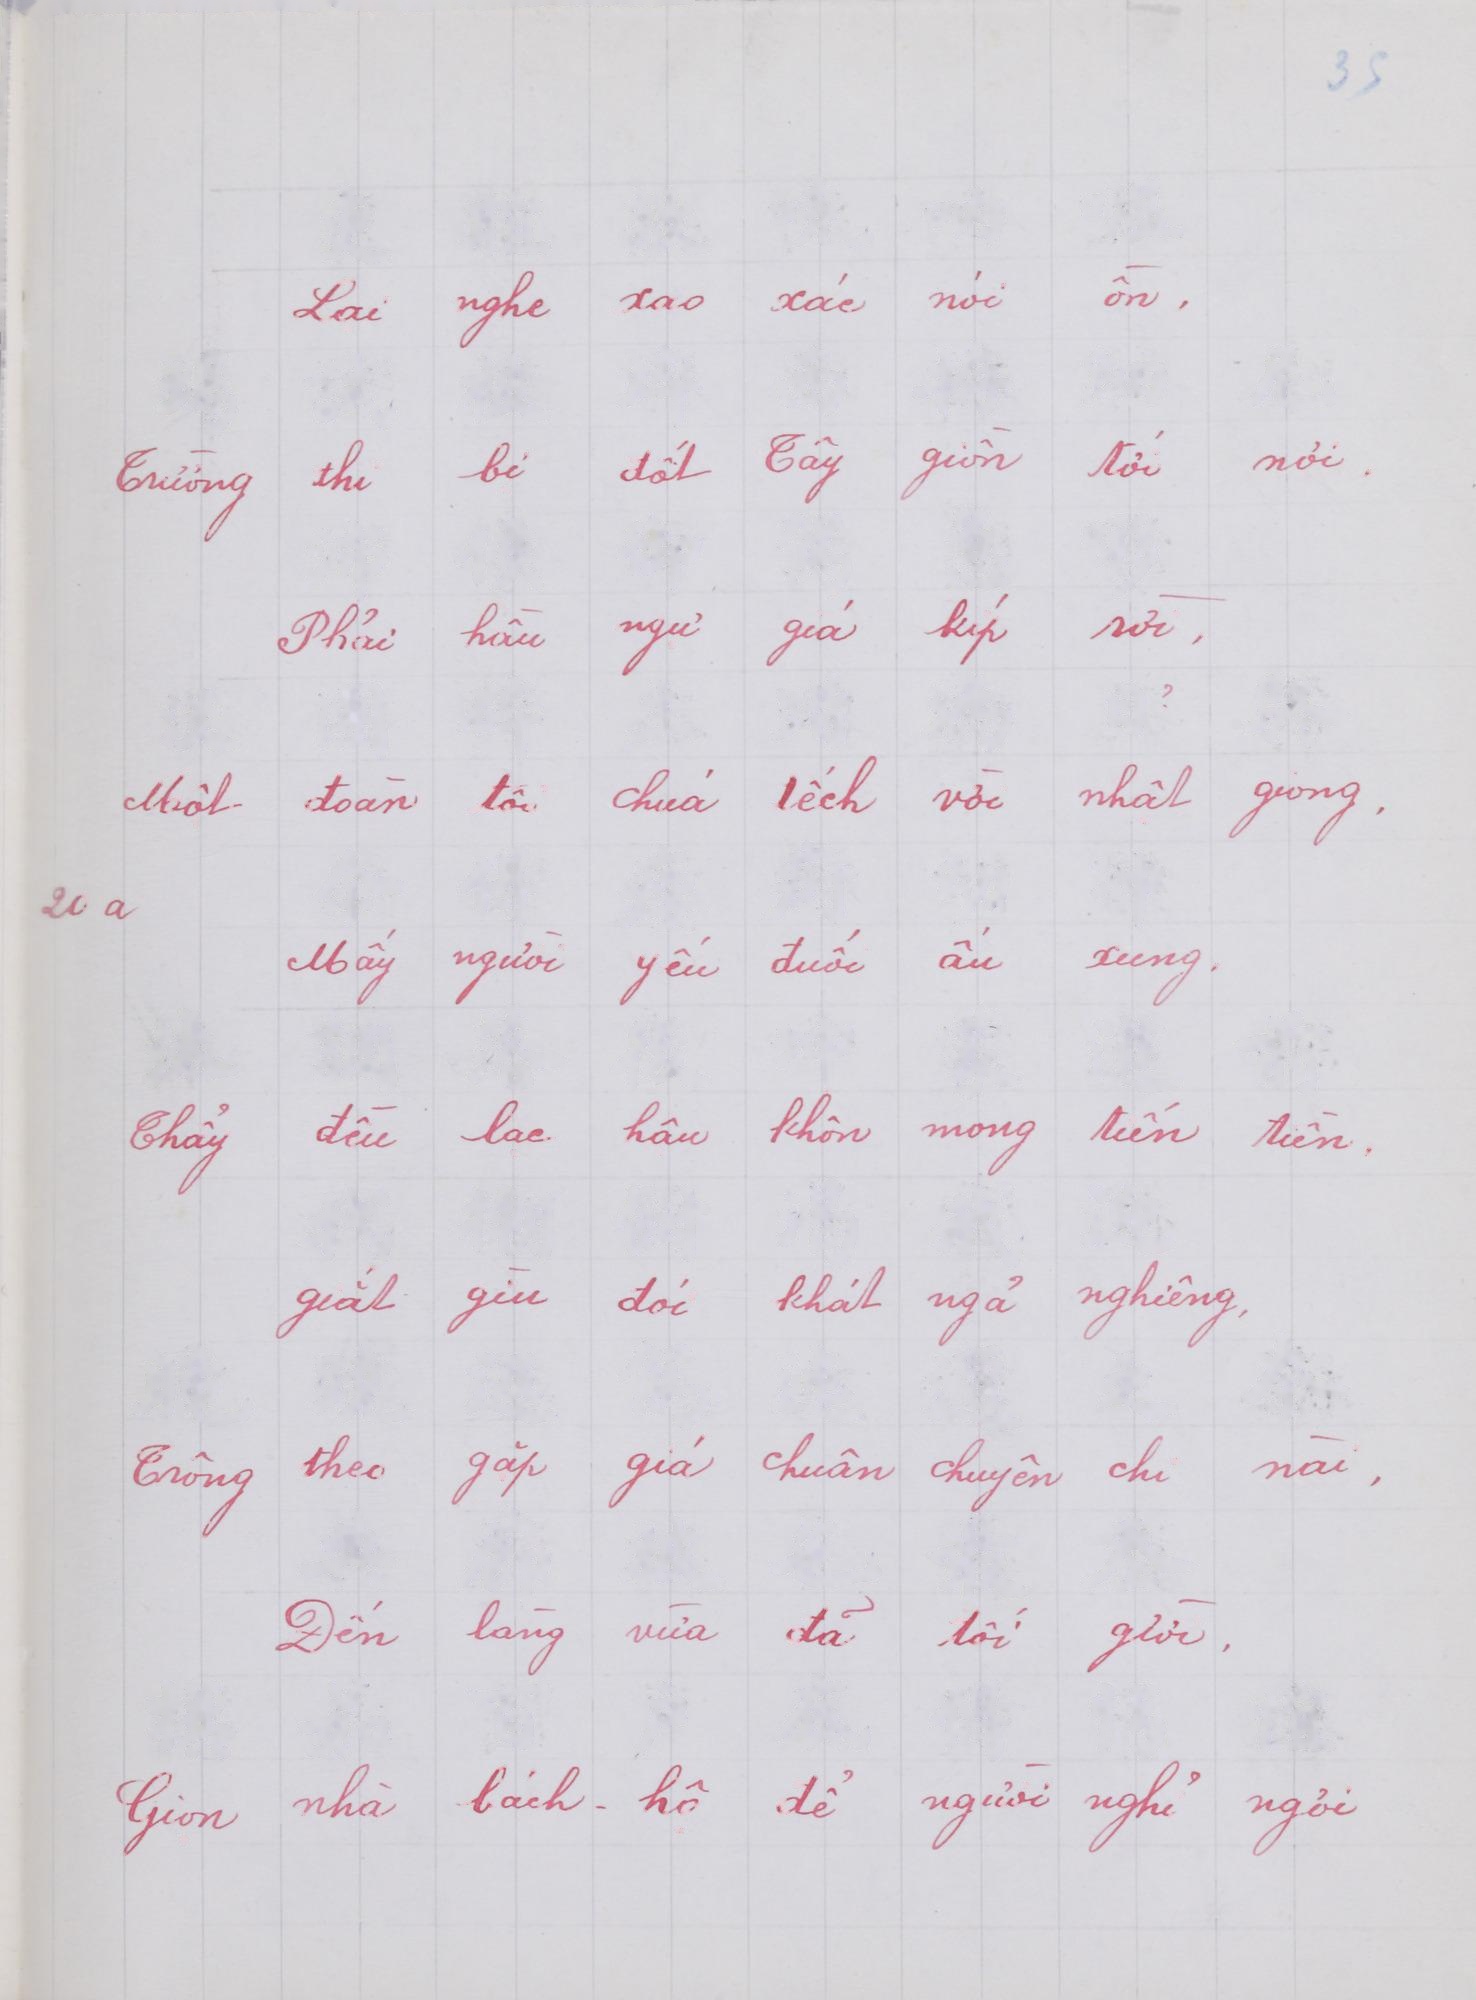 35
Lai nghe xao xác nói ồn,
Trường thi bi đốt Tây giồn tới nơi.
Phải hầu ngư giá kíp rời,
?
Môt đoàn tôi chuá lếch vời nhât giong,
20 a
Mấy người yếu đuối ấu xung.
Thảy đều lac hâu khôn mong tiến tiền.
giắt gìu đói khát ngả nghiêng,
Trông theo gặp giá chuân chuyên chi nài,
Đến làng vừa đã tối giời,
Gion nhà bách-hô để người nghỉ ngơi